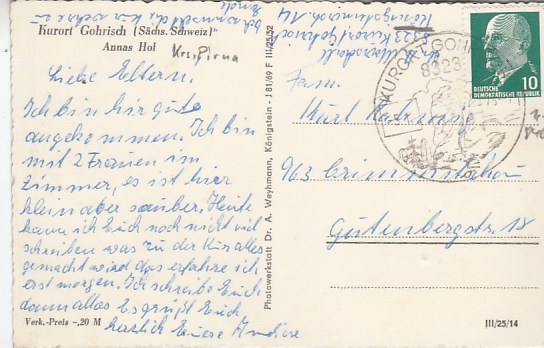 Kurort Gohrisch (Sächs. Schweiz)
Annas Hof
Krs. Pirna
Liebe Eltern.
Ich bin hir gut
angekommen. Ich bin
mit 2 Frauen im
Zimmer, es ist hir
klein aber sauber. Heute
kann ich Euch noch nicht viel
schreiben was zu der Kur alles
gemacht wird das erfahre ich
erst morgen. Ich schreibe Euch
dann alles Es grüßt Euch
herzlich Eure
Verk.-Preis -,20 M
Photowerkstatt Dr. A. Weyhmann, Königstein - J 81/69 F III/25/52
8323 Kurort Gohrisch
Königsteinerstr. 14
KURORT GOH
8323
DEUTSCHE
DEMOKRATISCHE REPUBLIK
10
Fam.
Kurt
963 Crimmitschau
Gutenbergstr. 18
III/25/14